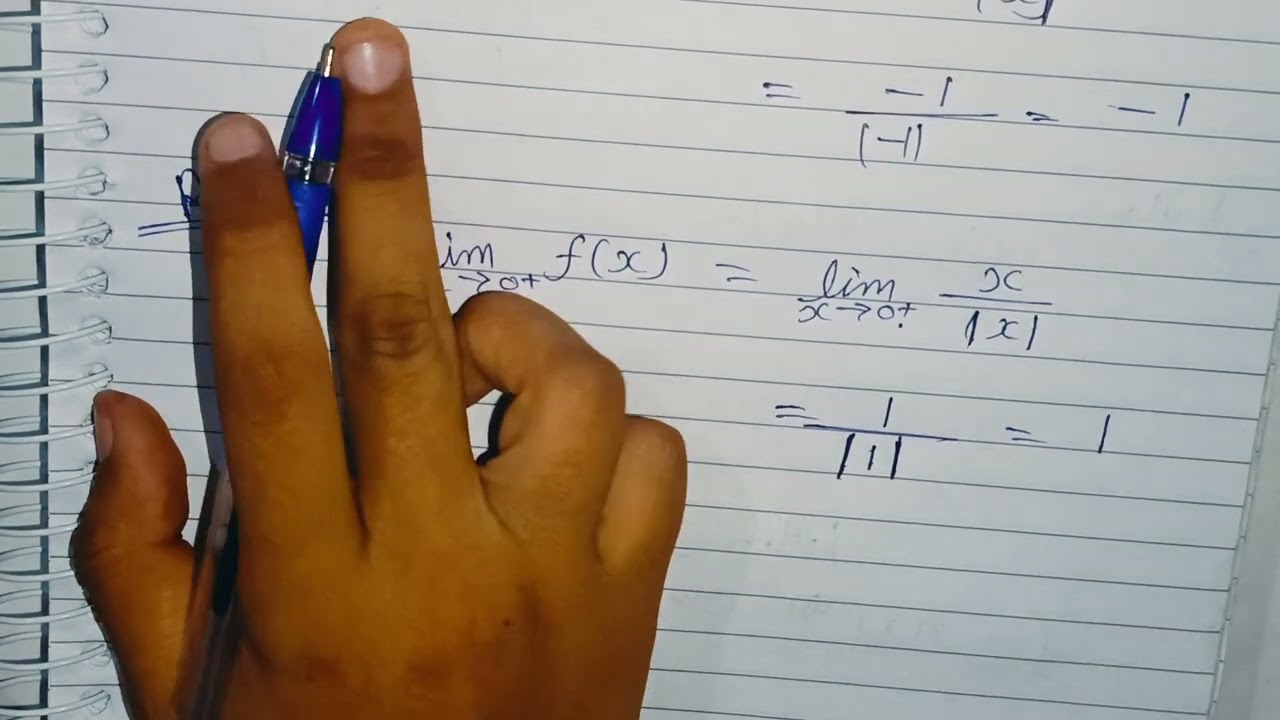 = -1 / |-1| = -1
im x→0+ f(x) = lim x→0+ x / |x|
= 1 / |1| = 1